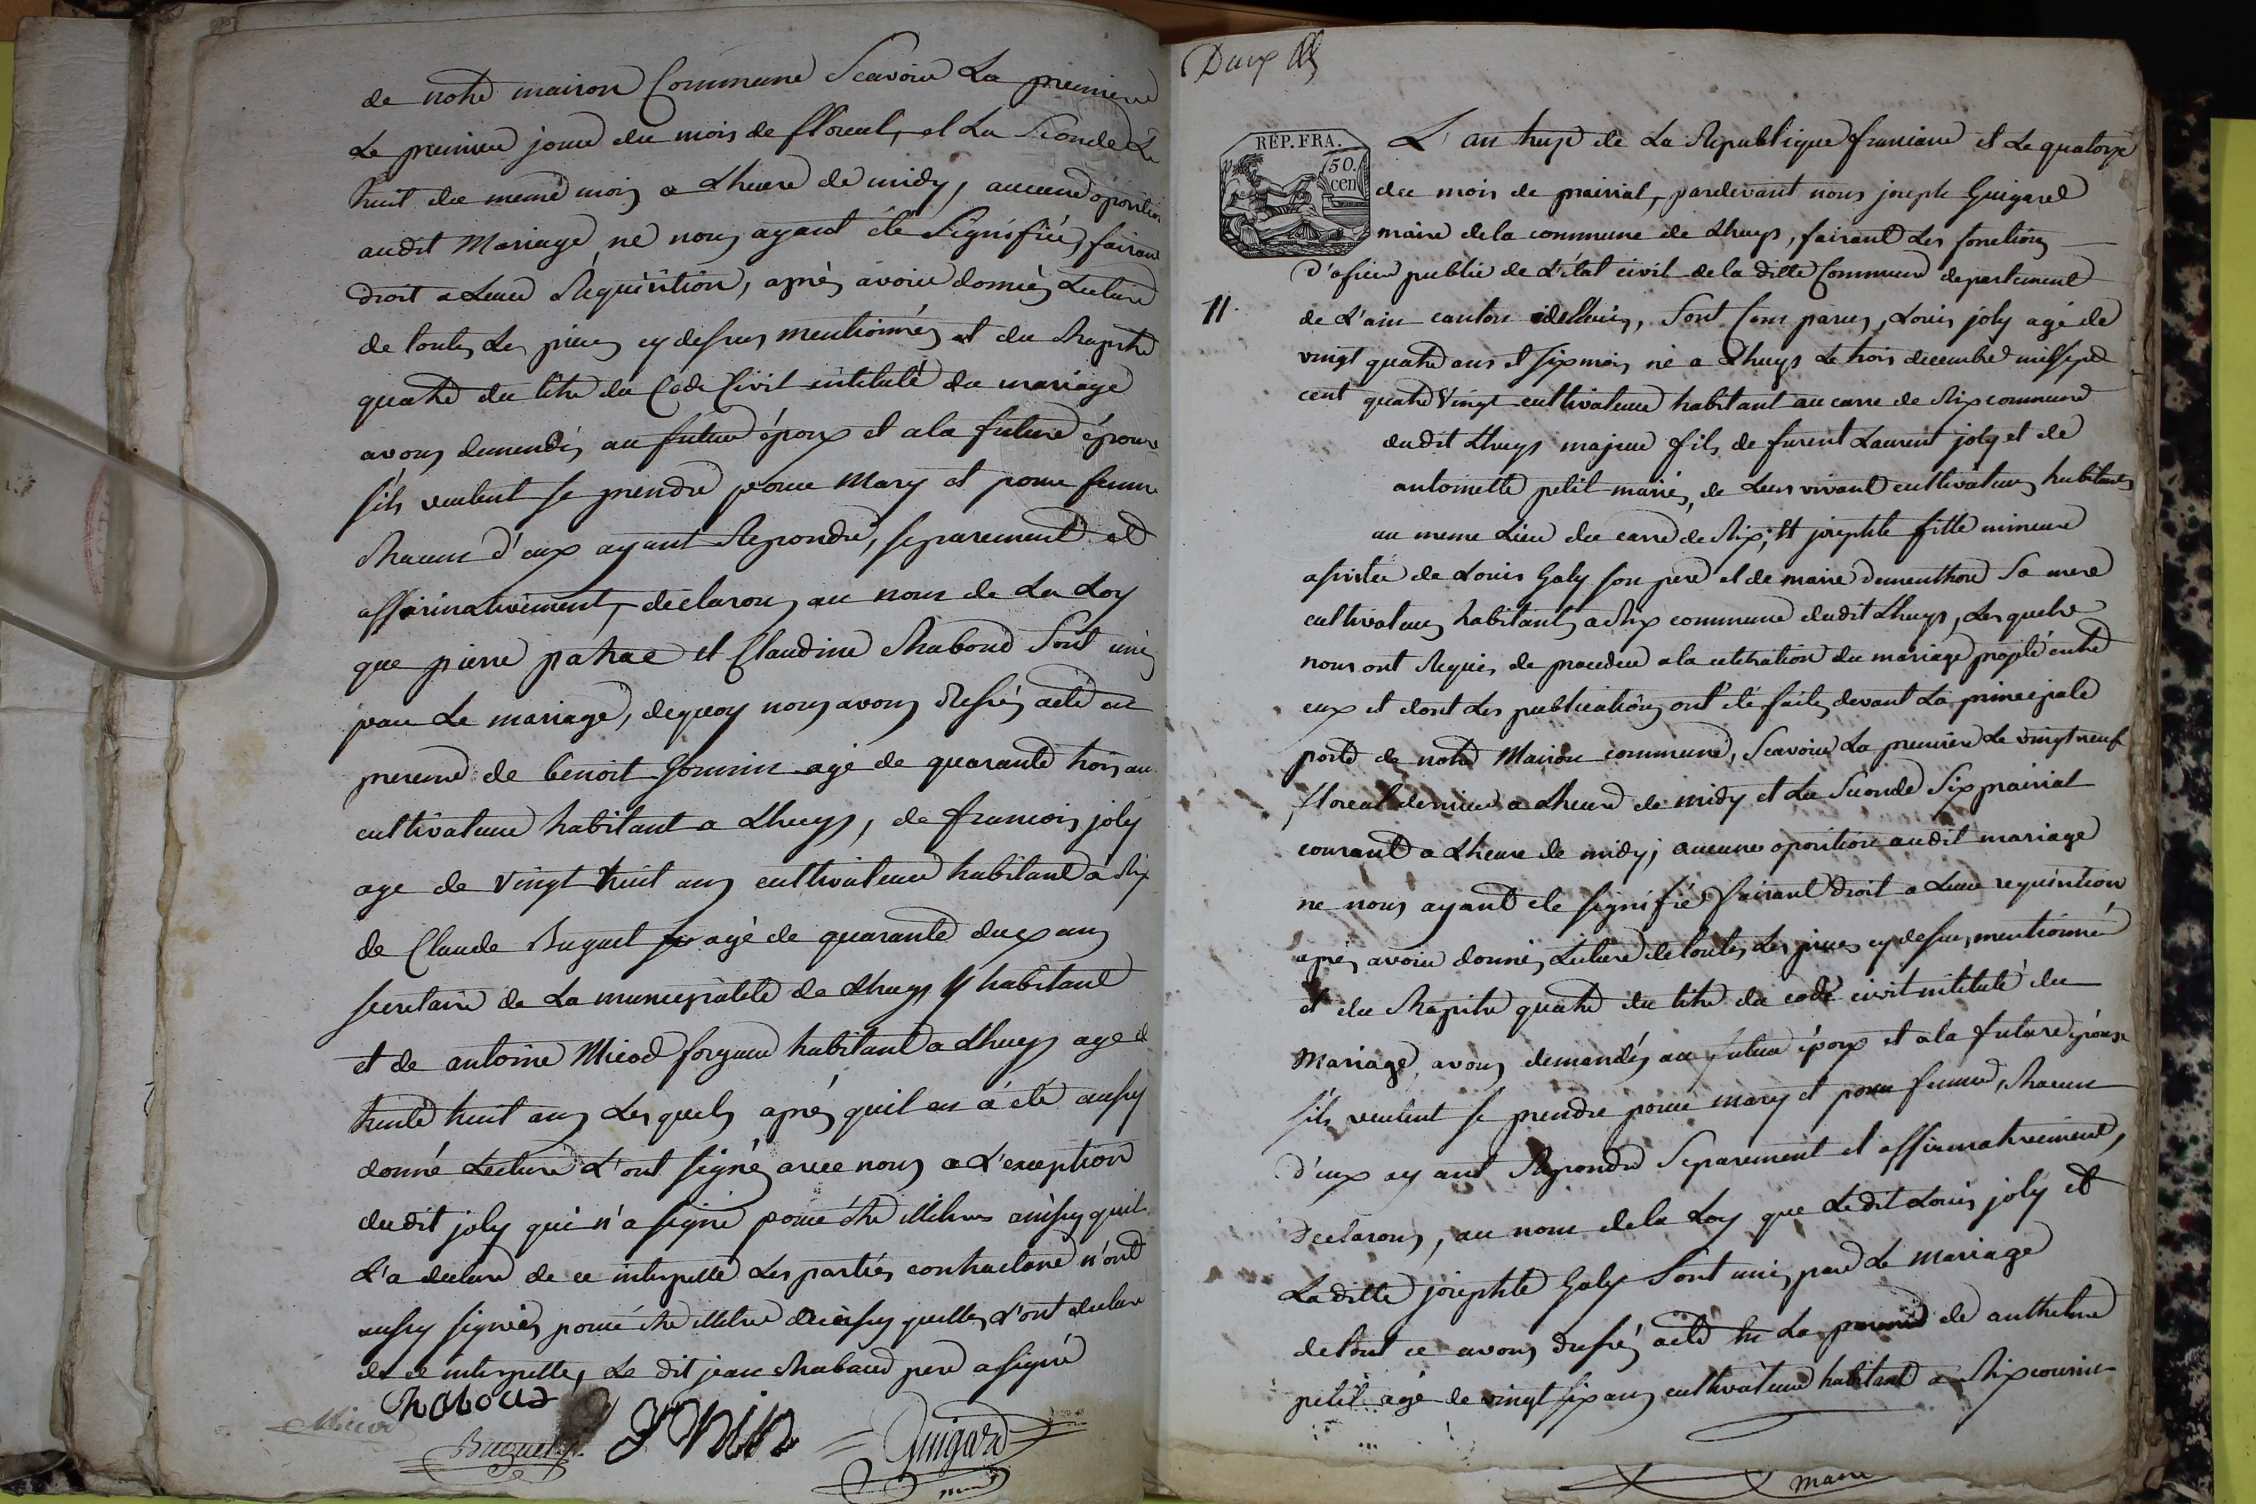 de notre maison Commune Scavoir La premiere
Le premier jour du mois de floreal, et La Seconde Le
huit du meme mois a Lheure de midy, aucune oposition
audit Mariage ne nous ayant été Signifiée, faisant
droit a Leur Réquisition, après avoir donnés Lecture
de toutes Les pieces cy dessus mentionnées et du Chapitre
quatre du titre du Code Civil intitulé du mariage
avons demandés au futur époux et a la future épouse
s'ils veulent se prendre pour Mary et pour femme
Chacun d'eux ayant Repondu, separement et
affirmativement, déclarons au nom de La Loy
que pierre patrae et Claudine Chaboud Sont unis
par Le mariage, dequoy nous avons Dressés acte en
presence de benoit Gonnin agé de quarante trois ans
cultivateur habitant a Lhuys, de francois joly
age de vingt huit ans cultivateur habitant a Rix
de Claude Buguet agé de quarante deux ans
secretaire de La municipalité de Lhuys y habitant
et de antoine Micod forgeur habitant a Lhuys age de
trente huit ans Les quels après quil en a été aussy
donné Lecture L'ont signés avec nous a L'exception
dudit joly qui n'a signé pour étre illitres ainsy quil
L'a declaré de ce interpellé Les parties contractant n'ont
aussy signées pour étre illitré ainsy quelles L'ont declaré
de ce interpellé, Le dit jean Chaboud pere a signé
Chaboud
Micod
Buguet
Guigard
maire
Deux
REP. FRA.
50.
cen
L'an huze de La Republique francaise et Le quatorze
du mois de prairial, pardevant nous joseph Guigard
maire de la commune de Lhuys, faisant Les fonctions
D'oficier public de L'état civil de la ditte Commune departement
11.
de L'ain canton de Lhuis, Sont Comparus, Louis joly agé de
vingt quatre ans et six mois né a Lhuys Le trois decembre mil sept
cent quatre Vingt cultivateur habitant au carre de Rix commune
dudit Lhuys majeur fils de furent Laurent joly et de
antoinette petit mariés, de Leur vivant cultivateurs habitants
au meme Lieu du carre de Rix; Et josephte fille mineure
assistée de Louis Galy son pere et de marie dementhon Sa mere
cultivateurs habitants a Rix commune dudit Lhuys, Lesquels
nous ont Requis de proceder a la celebration du mariage projeté entre
eux et dont Les publications ont été faites devant La principale
porte de notre Maison commune, Scavoir La premiere Le vingt neuf
floreal dernier a Lheure de midy et La Seconde Six prairial
courant a Lheure de midy; aucune oposition audit mariage
ne nous ayant été signifiée faisant droit a Leur requisition
après avoir donnés Lecture de toutes Les pieces cy dessus mentionnée
et du Chapitre quatre du titre du code civil intitulé du
Mariage, avons demandés au futur époux et a la future épouse
s'ils veulent se prendre pour mary et pour femme, Chacun
d'eux ayant Repondu Separement et affirmativement,
Declarons, au nom de la Loy que Le dit Louis joly et
La ditte josephte Galy Sont unis par Le mariage
de tout ce avons dressés acte La presence de anthelme
petit agé de vingt six ans cultivateur habitant a Rix
maire